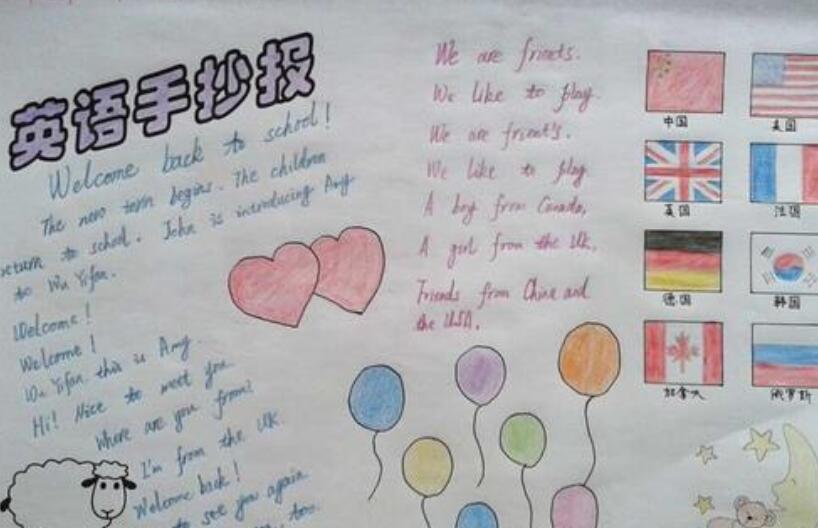 英语手抄报
Welcome back to school!
The new term begins. The children
return to school. John is introducing Amy
to Wu Yifan.
Welcome!
Welcome!
Wu Yifan. this is Amy.
Hi! Nice to meet you
Where are you from?
I'm from the UK.
Welcome back!
to see you again
too.
We are friends.
We like to play.
We are friend's.
We like to play
A boy from Canada,
A girl from the UK,
Friends from China and
the USA.
中国
美国
英国
法国
德国
韩国
加拿大
俄罗斯